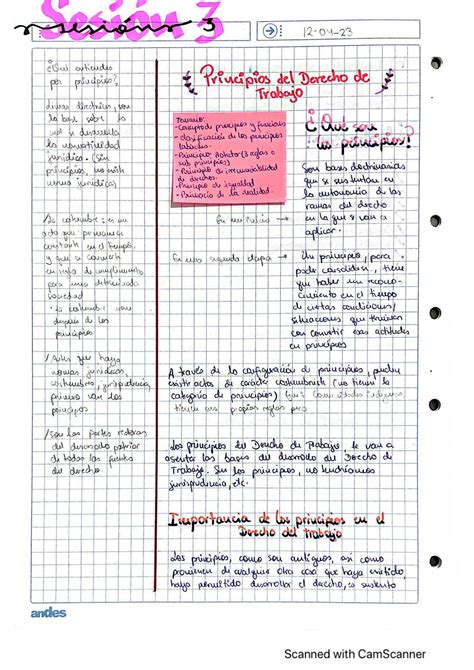 Sesión 3
sesión 3
12-04-23
Principios del Derecho de
Trabajo
¿Qué entiendes
por principios?
Temario:
- Concepto de principios y funciones
- clasificación de los principios
laborales.
- Principio Protector (3 reglas o
sub principios)
- Principio de irrenunciabilidad
de derechos.
- Principio de igualdad
- Primacía de la realidad.
¿Qué son
los principios?
Son bases doctrinarias
que se sustentan en
la autonomía de las
ramas del derecho
en la que se van a
aplicar.
En una segunda etapa →
Un principio, para
poder consolidar, tiene
que haber un recono-
cimiento en el tiempo
de ciertas condiciones/
situaciones que
con convertir esas actitudes
en principios
la base sobre la
cual se desarrolla
la normatividad
jurídica. (Sin
principios, no existe
norma jurídica)
/La costumbre: es un
acto que permanece
constante en el tiempo,
y que se convierte
en regla de cumplimiento
para una determinada
sociedad
• La costumbre viene
después de los
principios
/Antes que haya
normas jurídicas,
costumbres, jurisprudencia,
primero van los
principios
/Son las partes
del desarrollo
de todas las fuentes
del derecho.
A través de la configuración de principios, pueden
existir actos de carácter costumbrista (no tienen la
categoría de principios) Ejm: Comunidades indígenas
tienen sus propias reglas pero
Los principios del Derecho de Trabajo, le van a
asentar las bases del desarrollo del Derecho de
Trabajo. Sin los principios, no tendríamos
jurisprudencia, etc.
Importancia de los principios en el
Derecho del trabajo
Los principios, como son antiguos, así como
provienen de cualquier otra cosa que haya existido,
haya permitido desarrollar el derecho, es sustento
andes
Scanned with CamScanner